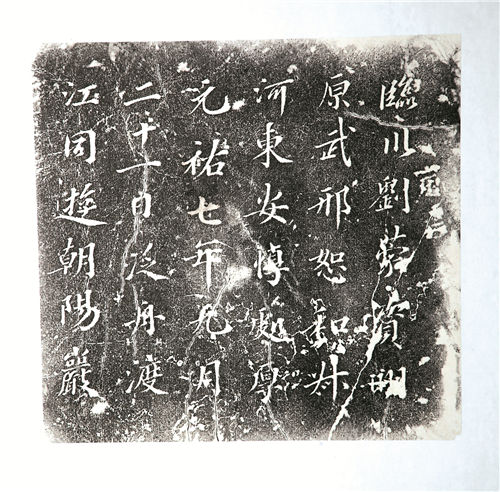 臨川劉蒙資明
原武邢恕和叔
河東安惇處厚
元祐七年九月
二十一日泛舟渡
江同遊朝陽巖